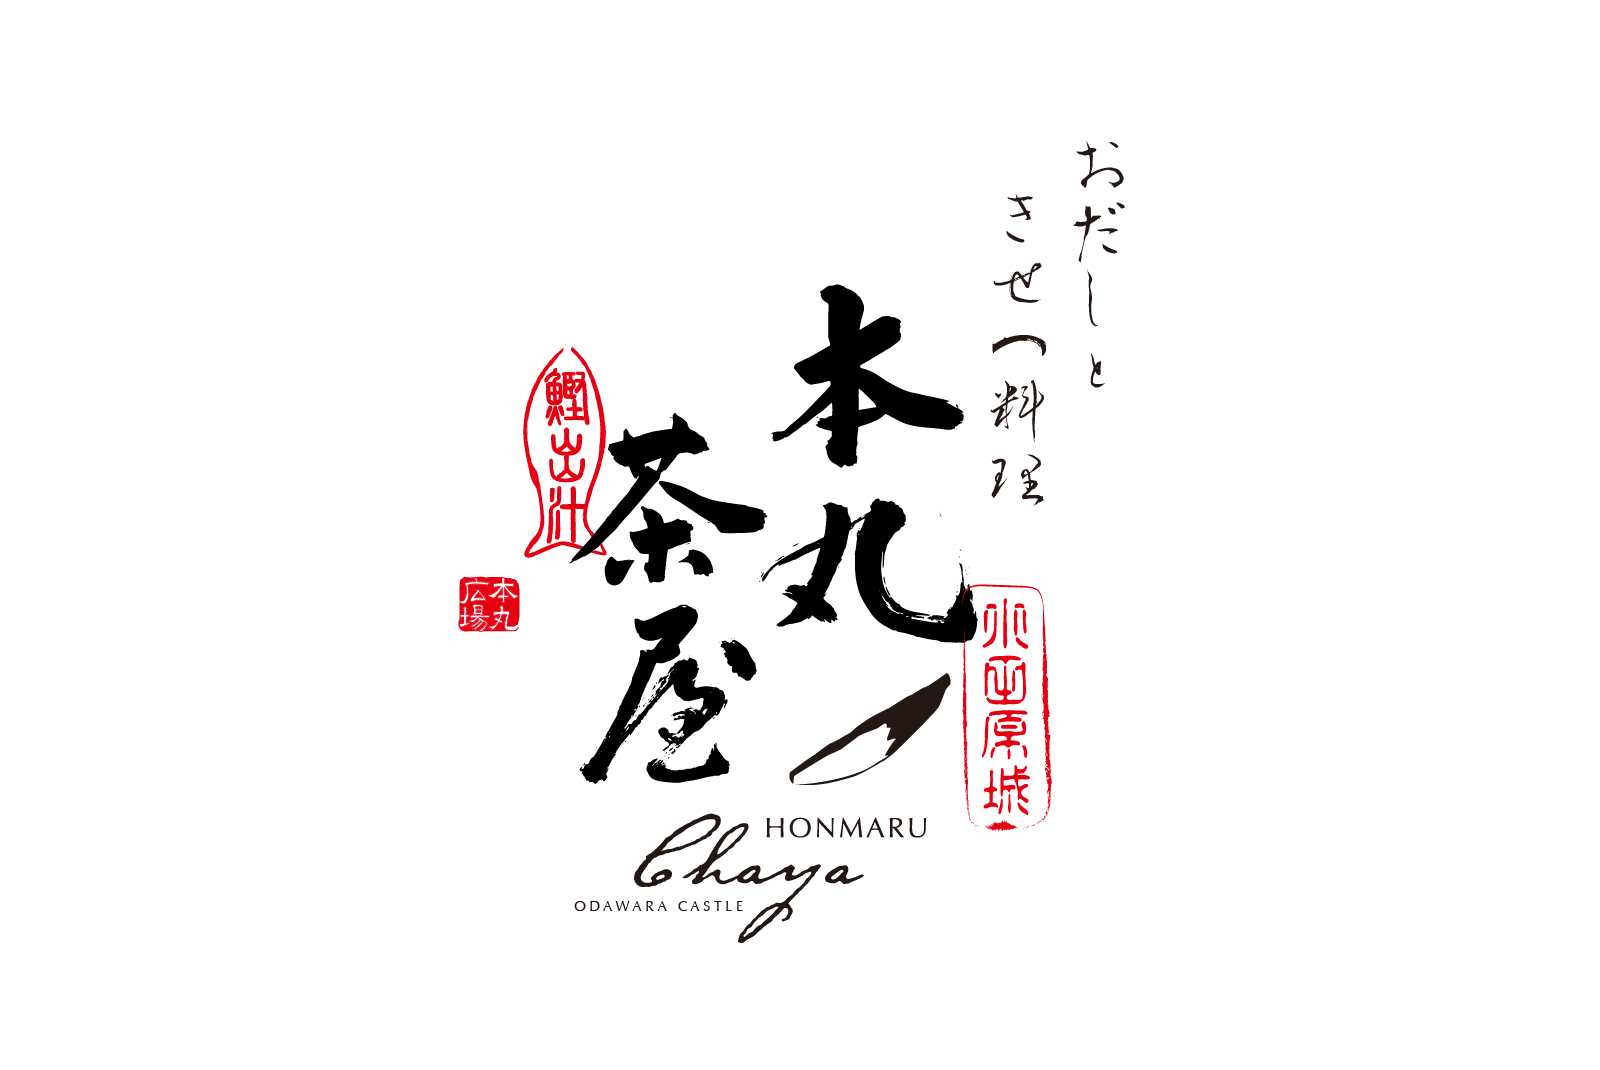 おだしと
きせつ料理
本丸
茶屋
鰹出汁
本丸
広場
小田原城
HONMARU
Chaya
ODAWARA CASTLE